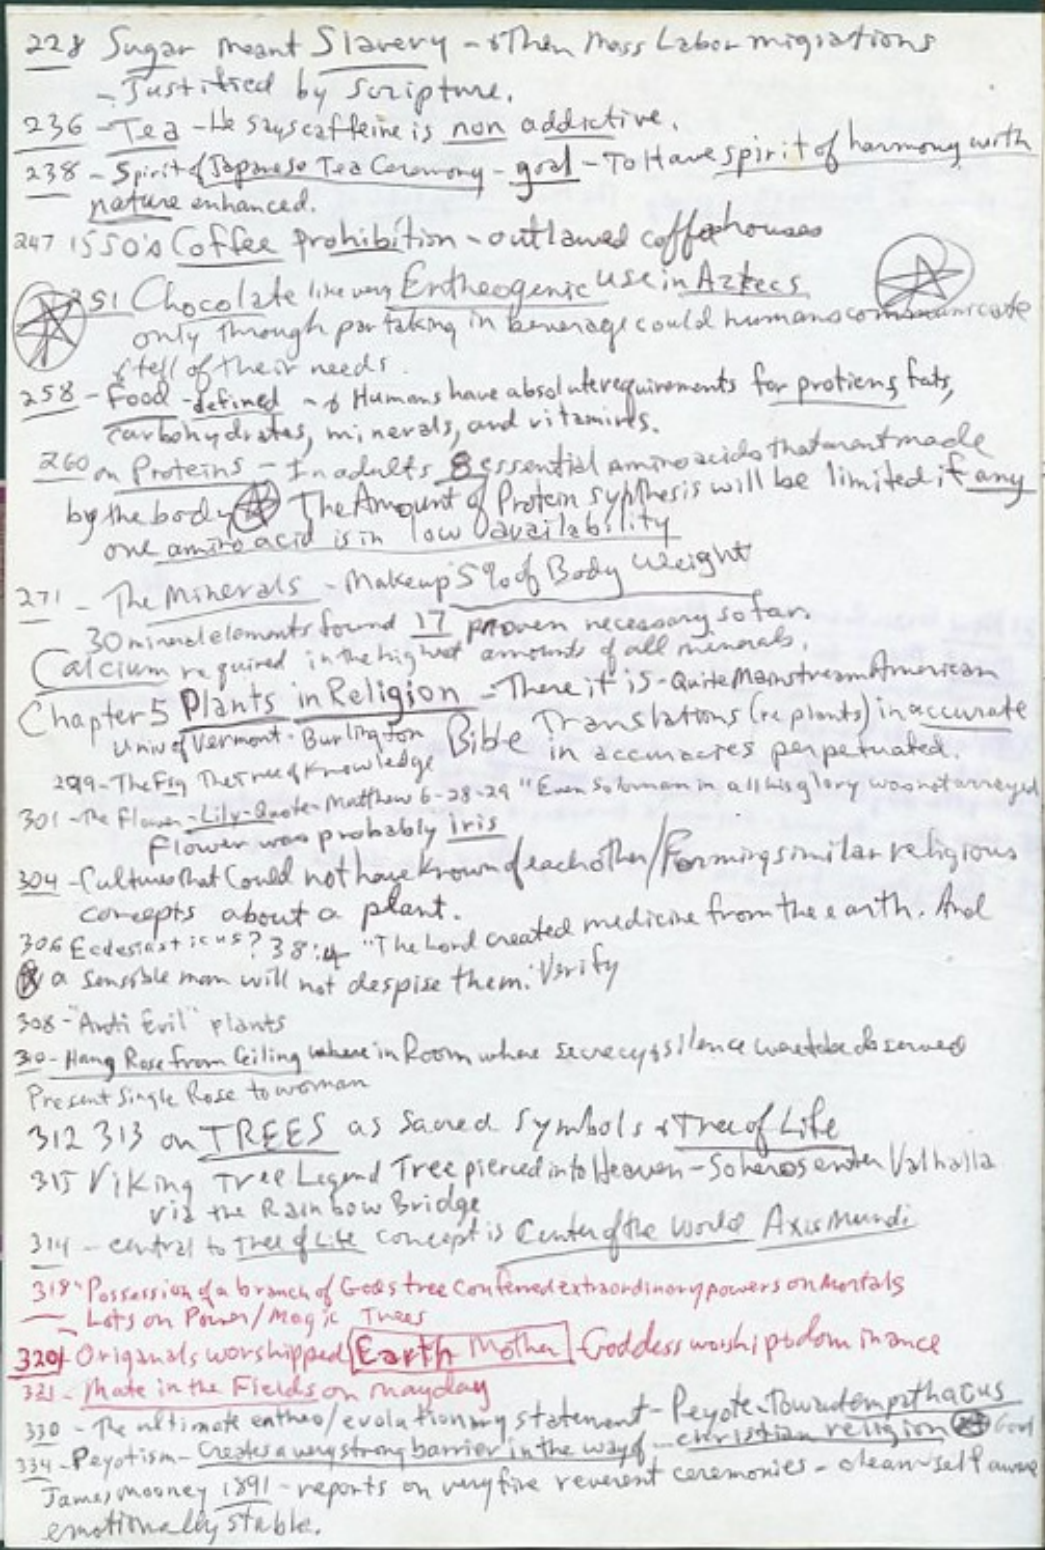 228 Sugar meant Slavery - & Then Mass Labor migrations
- Justified by scripture.
236 - Tea - He says caffeine is non addictive.
238 - Spirit of Japanese Tea Ceremony - goal - To Have spirit of harmony with
nature enhanced.
247 1550's Coffee prohibition - outlawed coffeehouses
251 Chocolate like very Entheogenic use in Aztecs
only through partaking in beverage could humans communicate
& tell of their needs.
258 - Food - defined - & Humans have absolute requirements for protiens, fats,
carbohydrates, minerals, and vitamins.
260 on Proteins - In adults 8 essential amino acids that arent made
by the body The Amount of Protein synthesis will be limited if any
one amino acid is in low availability
271 - The Minerals - Makeup 5% of Body Weight
30 mineral elements found 17 proven necessary so far.
Calcium required in the highest amounts of all minerals.
Chapter 5 Plants in Religion - There it is - Quite Mainstream American
Univ of Vermont - Burlington Bible Translations (re plants) inaccurate
in accuracies perpetuated.
299 - The Fig The Tree of Knowledge
301 - The Flower - Lily - Quote - Matthew 6-28-29 "Even Soloman in all his glory was not arrayed
Flower was probably iris
304 - Cultures that Could not have known of each other / Forming similar religious
concepts about a plant.
306 Ecclesiasticus? 38:4 "The Lord created medicine from the earth. And
a sensible man will not despise them." Verify
308 - "Anti Evil" plants
310 - Hang Rose from Ceiling where in Room where secrecy & silence was to be observed
Present Single Rose to woman
312 313 on TREES as Sacred Symbols & Tree of Life
315 Viking Tree Legend Tree pierced into Heaven - So heros enter Valhalla
via the Rainbow Bridge
314 - central to Tree of Life concept is Center of the World Axis Mundi
318 "Possession of a branch of Gods tree conferred extraordinary powers on mortals
- Lots on Power/Magic Trees
320 - Origanals worshipped Earth Mother Goddess worship dominance
321 - Mate in the Fields on Mayday
330 - The ultimate entheo/evolutionary statement - Peyote
334 - Peyotism - Creates a very strong barrier in the way of ... christian religion
James Mooney 1891 - reports on very fine reverent ceremonies - clean self aware
emotionally stable.